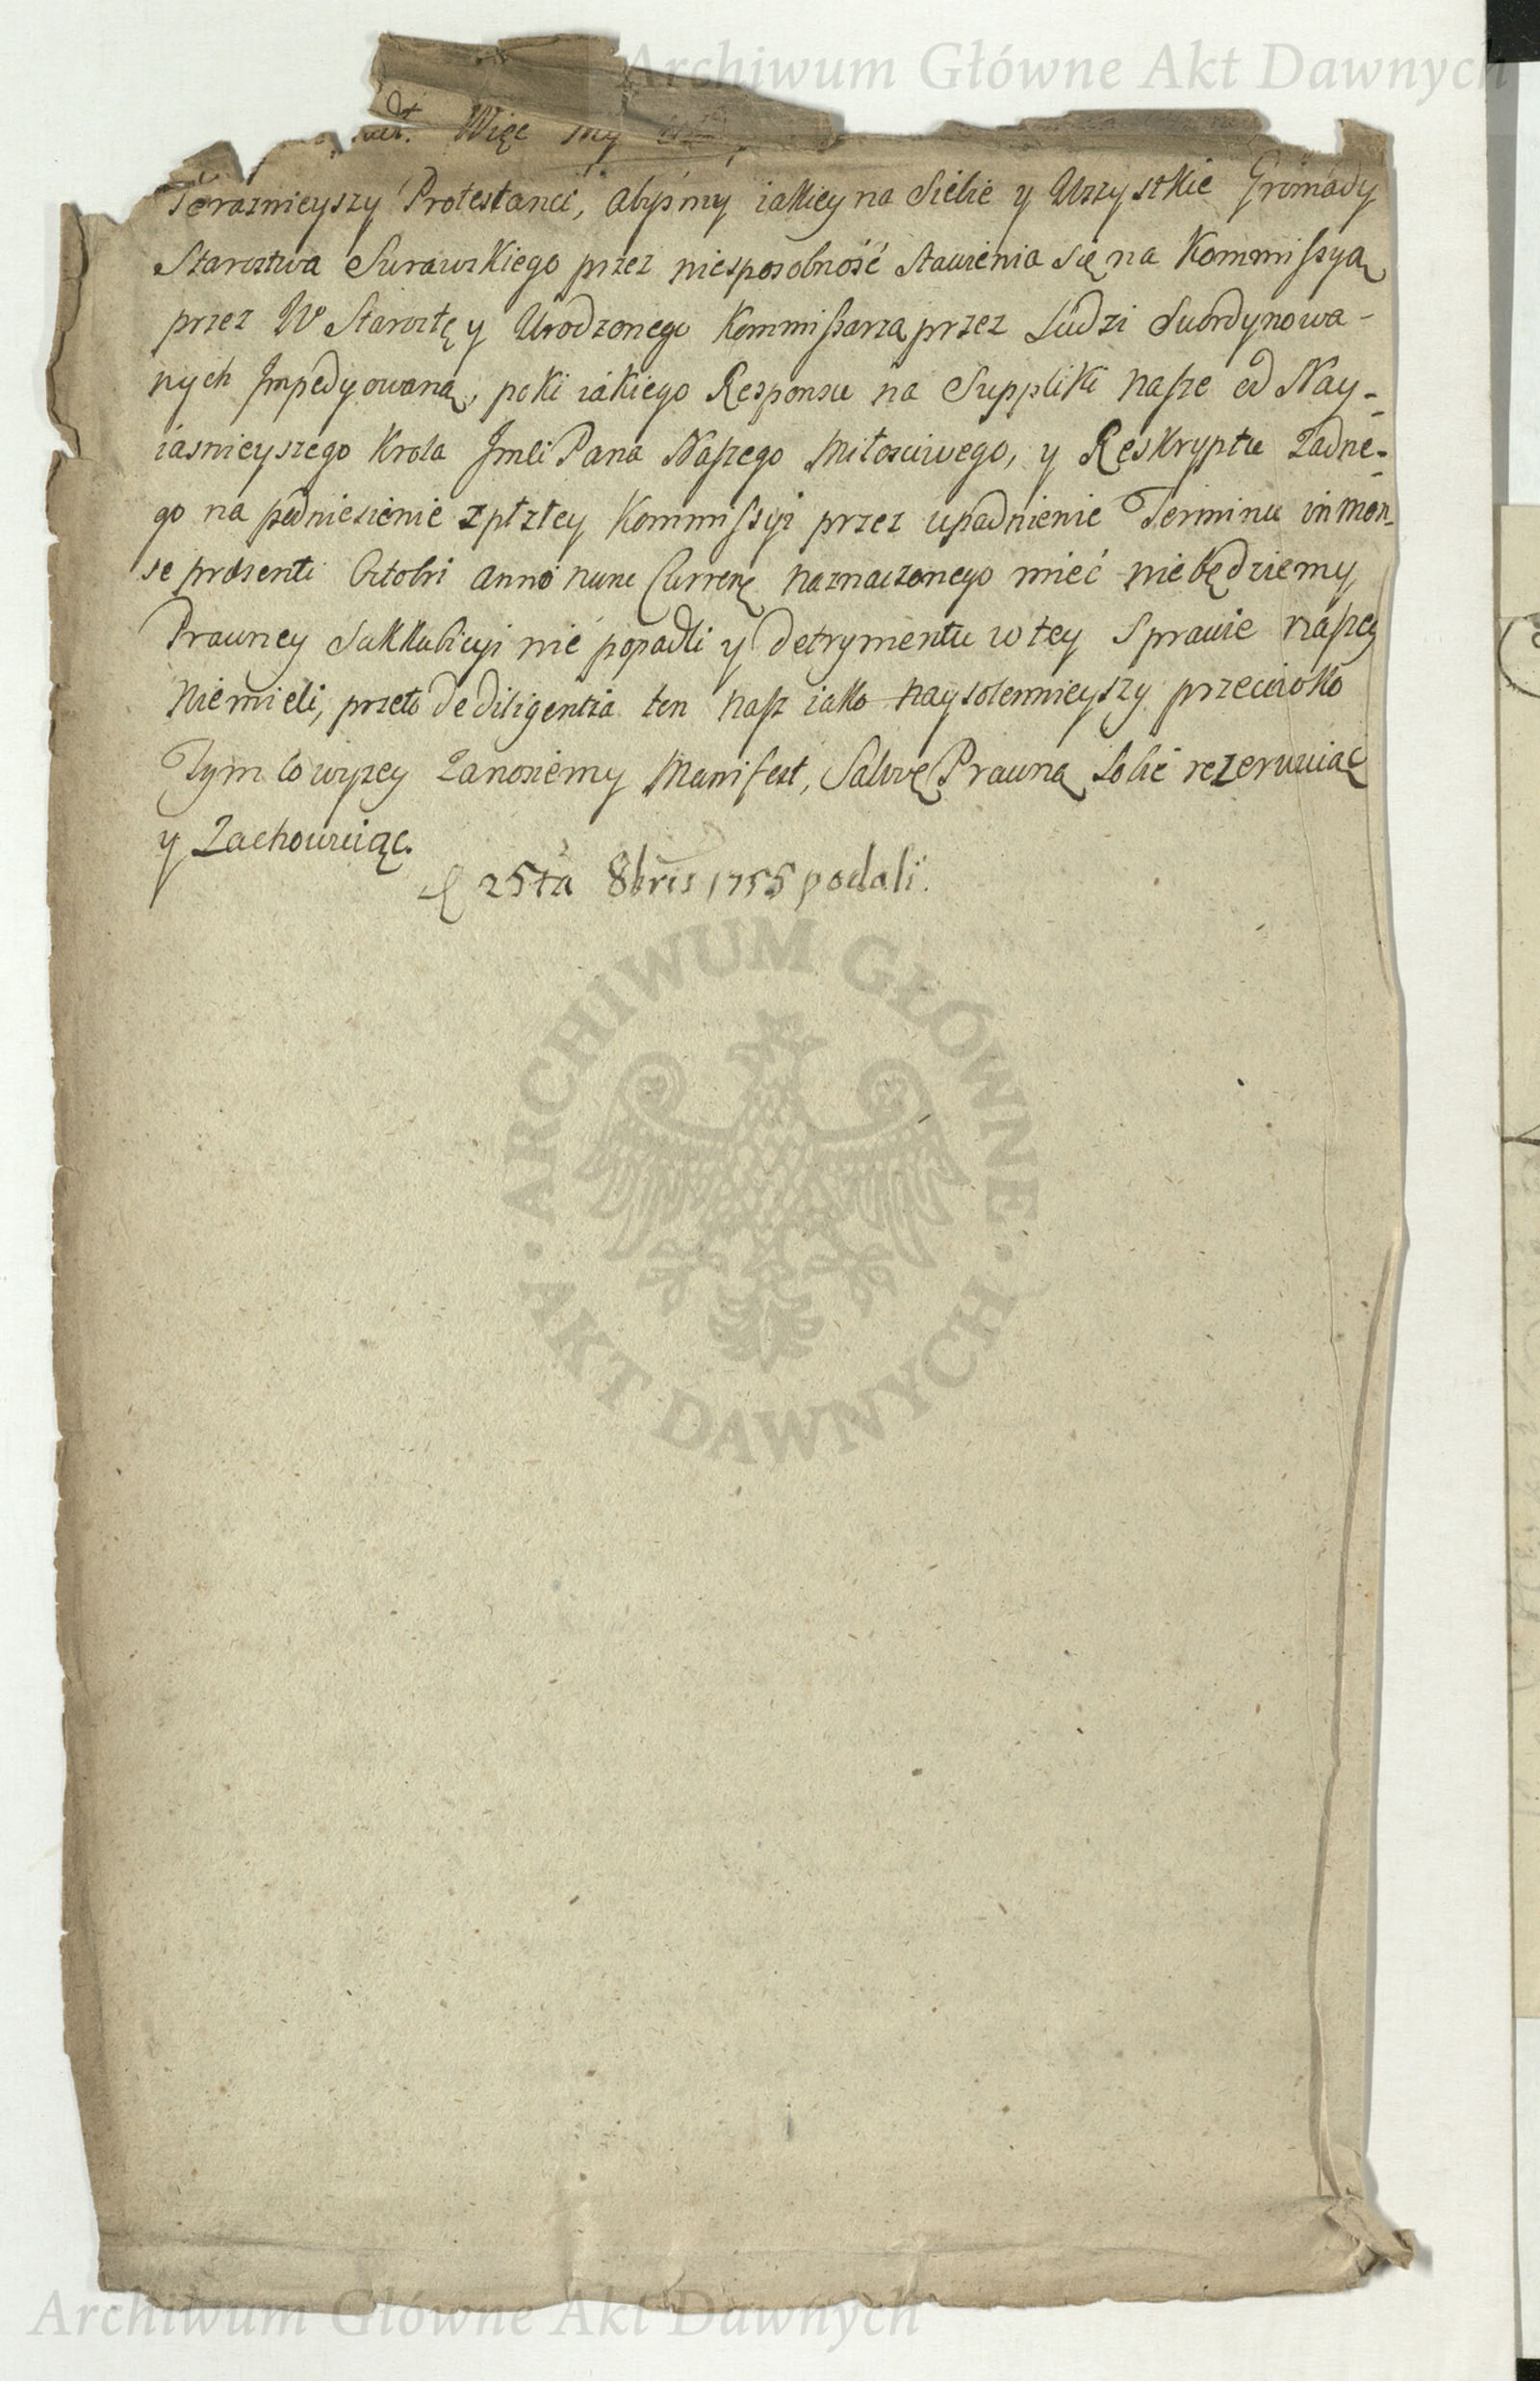 Archiwum Główne Akt Dawnych
Więc my
Teraznieyszy Protestanci, abysmy iakiey na Siebie y Wszystkie Gromady
Starostwa Surawskiego przez niesposobność stawienia się na Kommissyą
przez W Starostę y Urodzonego Kommissarza przez Ludzi Subordynowa-
nych Impedyowaną, poki iakiego Responsu na Suppliki nasze od Nay-
iasnieyszego Krola Jmci Pana Naszego Miłosciwego, y Reskryptu Zadne-
go na podniesienie zpłztey Kommissyi przez upadnienie Terminu in men-
se prasenti Octobri anno nunc Currenẽ naznaczonego mieć niebędziemy
Prawney Sukkubicyi nie popadli y detrymentu w tey Sprawie naszey
Niemieli, przeto de diligentia ten nasz iako naysolennieyszy przeciwko
Tym co wyzey Zanosiemy Manifest, Salwę Prawną Sobie rezerwuiąc
y Zachowuiąc.
25ta 8bris 1755 podali.
ARCHIWUM GŁÓWNE
AKT DAWNYCH
Archiwum Główne Akt Dawnych